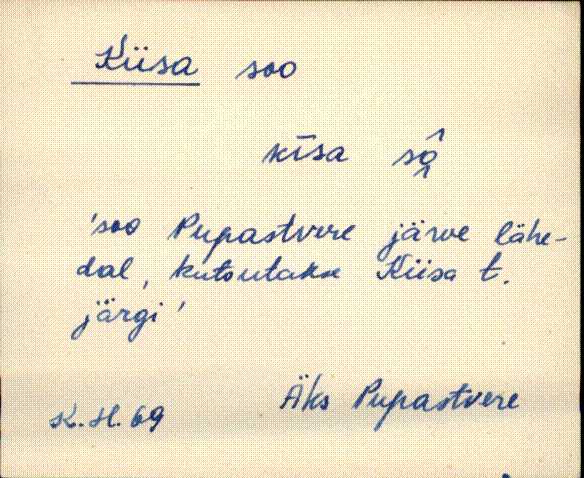 Kiisa soo
kīsa sō̭̂
'soo Pupastvere järve lähe-
dal, kutsutakse Kiisa t.
järgi'
Äks Pupastvere
K. H. 69